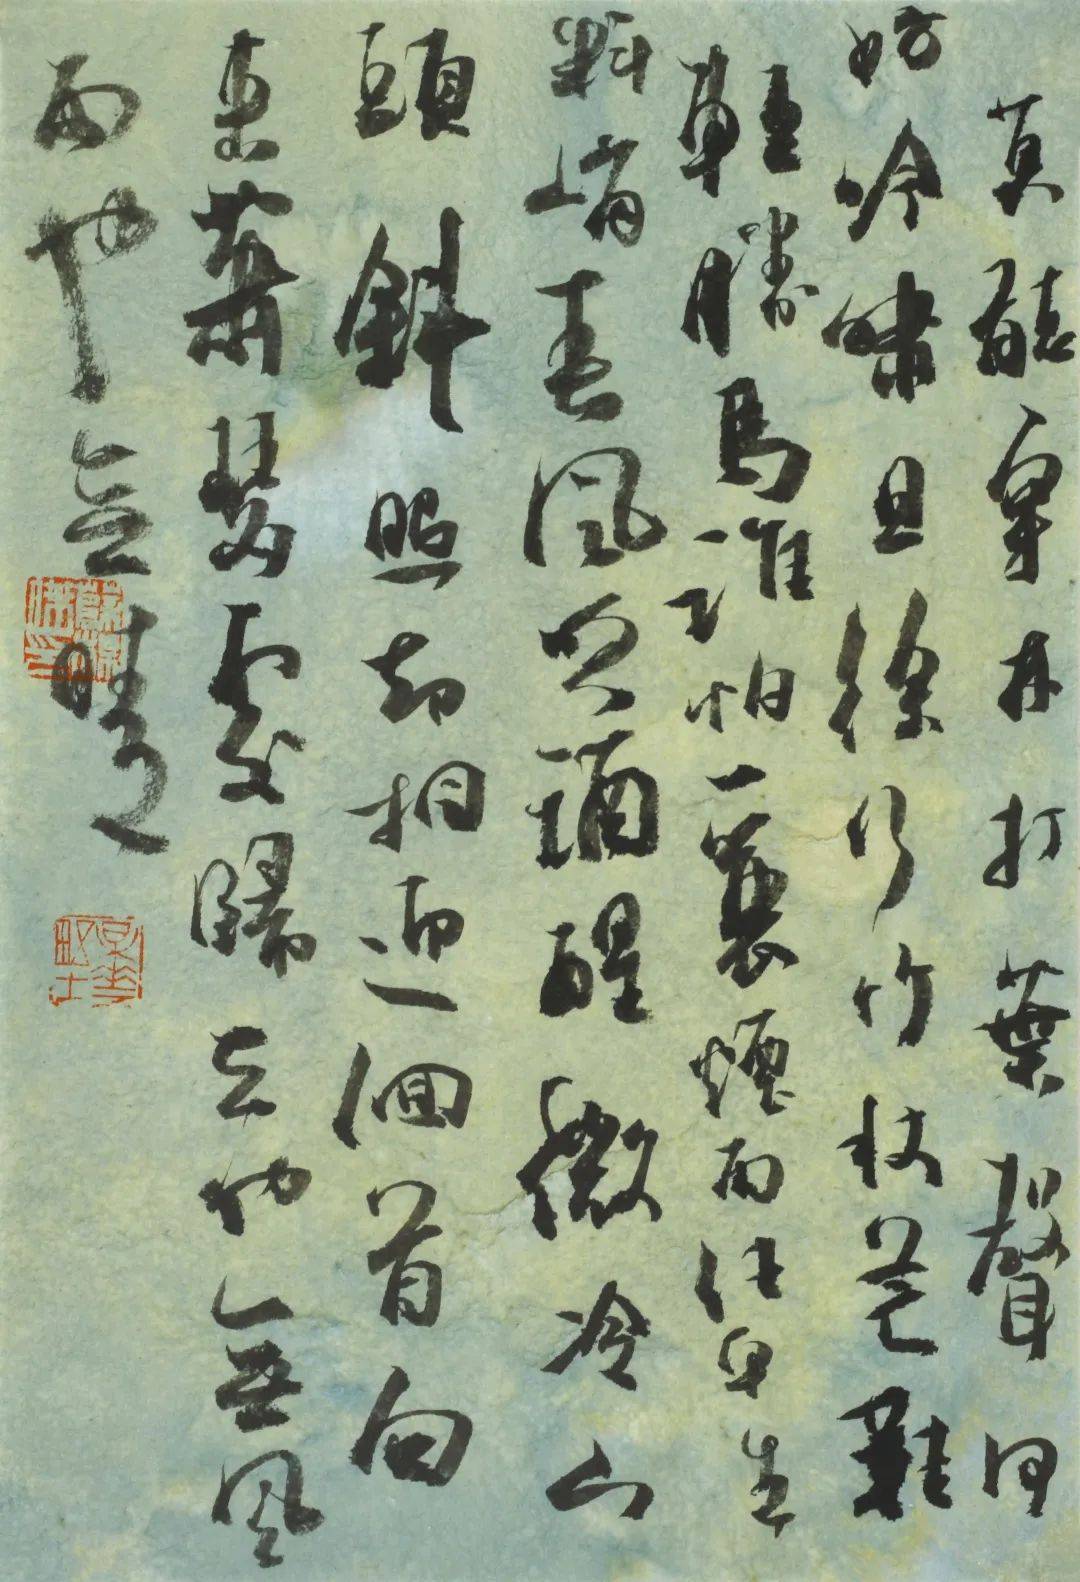 莫聽穿林打葉聲何
妨吟嘯且徐行竹杖芒鞋
輕勝馬誰怕一蓑煙雨任平生
料峭春風吹酒醒微冷山
頭斜照却相迎迴首向
來蕭瑟處歸去也無風
雨也無晴